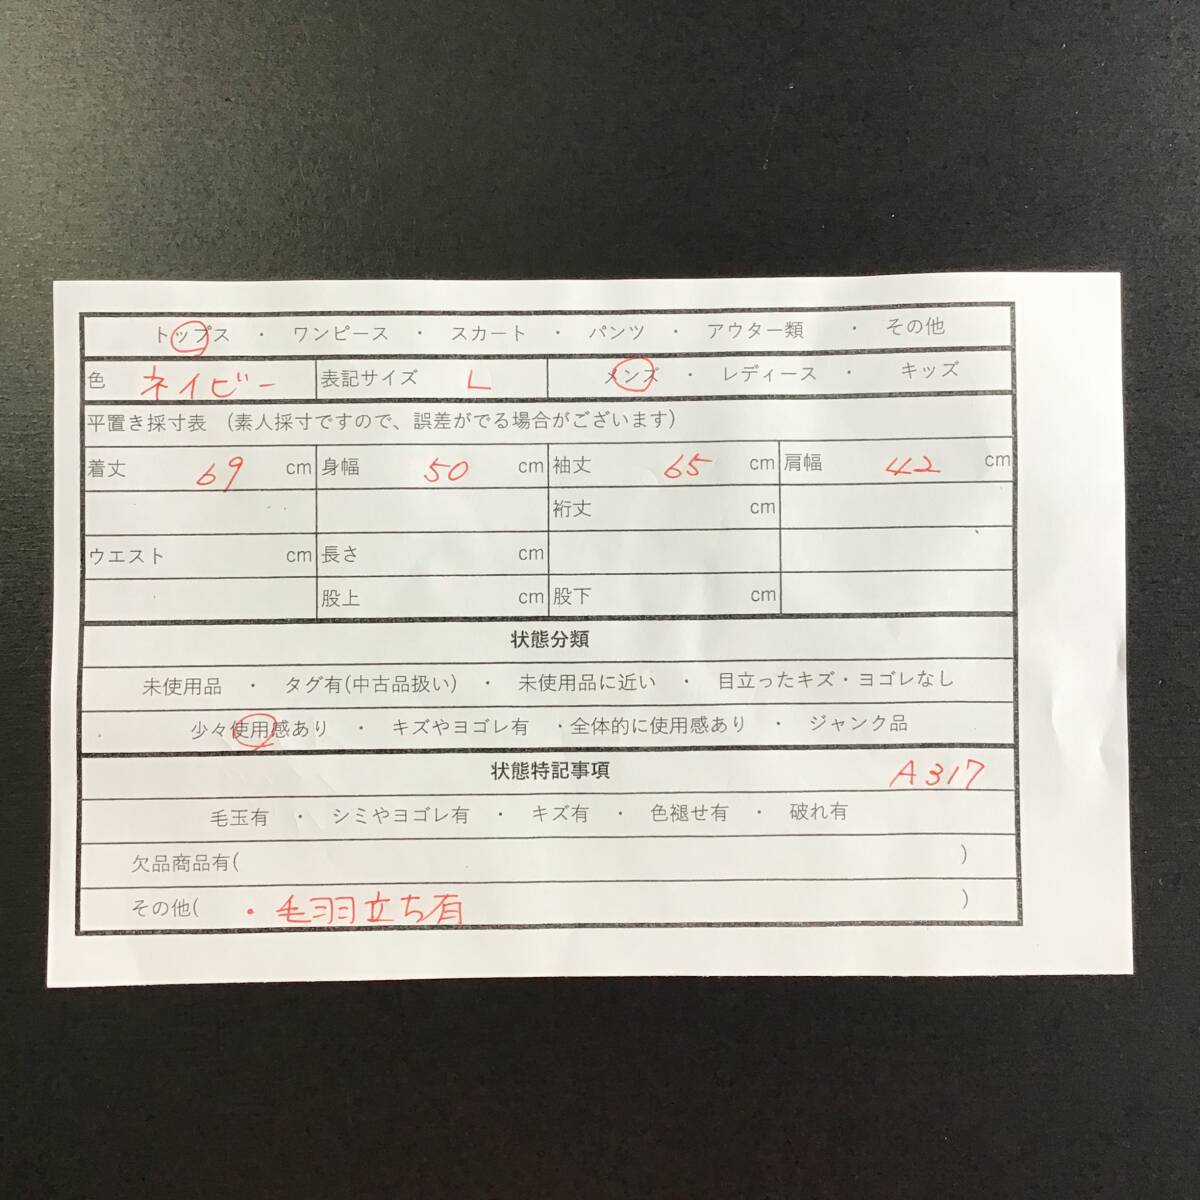 トップス ・ ワンピース ・ スカート ・ パンツ ・ アウター類 ・ その他
色 ネイビー 表記サイズ L メンズ ・ レディース ・ キッズ
平置き採寸表 (素人採寸ですので、誤差がでる場合がございます)
着丈 69 cm 身幅 50 cm 袖丈 65 cm 肩幅 42 cm
裄丈 cm
ウエスト cm 長さ cm
股上 cm 股下 cm
状態分類
未使用品 ・ タグ有(中古品扱い) ・ 未使用品に近い ・ 目立ったキズ・ヨゴレなし
少々使用感あり ・ キズやヨゴレ有 ・全体的に使用感あり ・ ジャンク品
状態特記事項 A317
毛玉有 ・ シミやヨゴレ有 ・ キズ有 ・ 色褪せ有 ・ 破れ有
欠品商品有( )
その他( ・毛羽立ち有 )